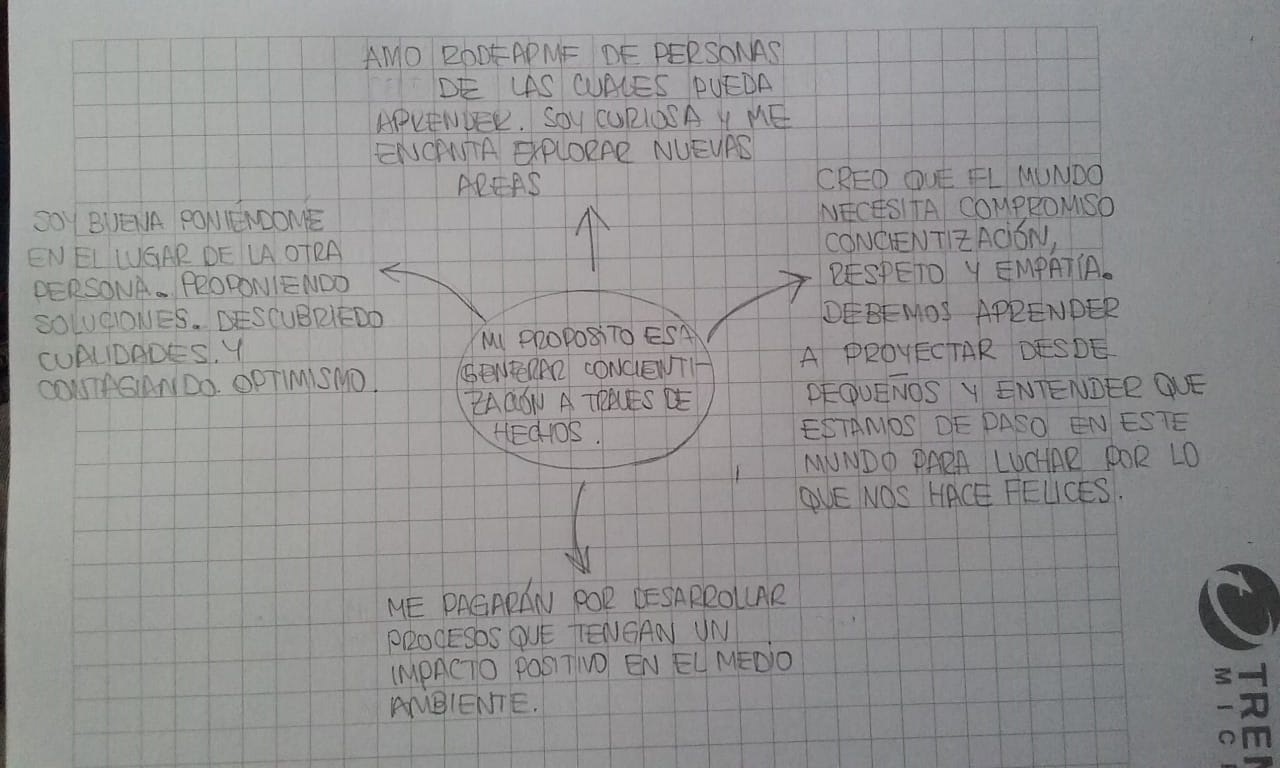 AMO RODEARME DE PERSONAS
DE LAS CUALES PUEDA
APRENDER. SOY CURIOSA Y ME
ENCANTA EXPLORAR NUEVAS
AREAS
SOY BUENA PONIÉNDOME
EN EL LUGAR DE LA OTRA
PERSONA. PROPONIENDO
SOLUCIONES. DESCUBRIEDO
CUALIDADES. Y
CONTAGIANDO OPTIMISMO.
MI PROPOSITO ES A
GENERAR CONCIENTI-
ZACIÓN A TRAVES DE
HECHOS.
CREO QUE EL MUNDO
NECESITA COMPROMISO
CONCIENTIZACIÓN,
RESPETO Y EMPATÍA.
DEBEMOS APRENDER
A PROYECTAR DESDE
PEQUEÑOS Y ENTENDER QUE
ESTAMOS DE PASO EN ESTE
MUNDO PARA LUCHAR POR LO
QUE NOS HACE FELICES.
ME PAGARÁN POR DESARROLLAR
PROCESOS QUE TENGAN UN
IMPACTO POSITIVO EN EL MEDIO
AMBIENTE.
TREN
MICR